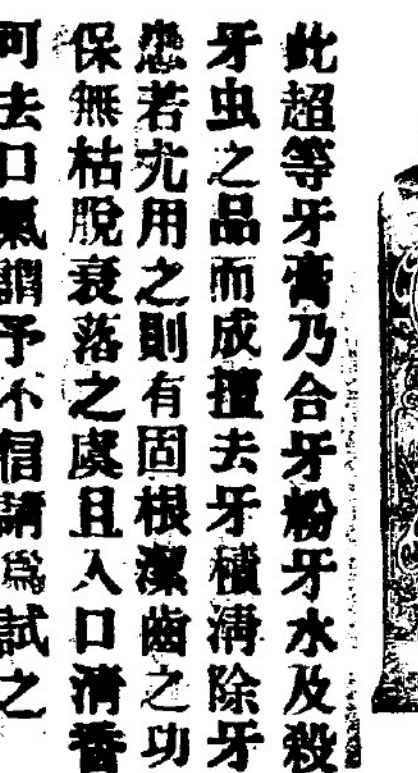 此超等牙膏乃合牙粉牙水及殺
牙虫之品而成擅去牙積淸除牙
患若尣用之則有固根潔齒之功
保無枯脫衰落之虞且入口清香
可去口氣謂予不信請爲試之